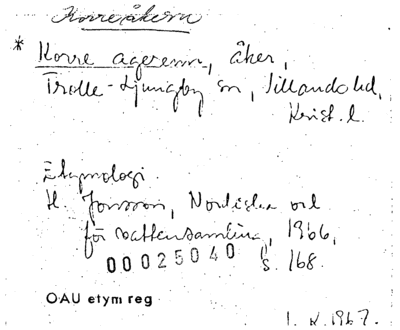 Korreåkern
* Korre ageren, åker,
Trolle-Ljungby sn, Villands hd,
Krist. l.
Etymologi.
H. Jonsson, Nordiska ord
för vattensamling, 1966,
s. 168.
00025040
OAU etym reg
1967.